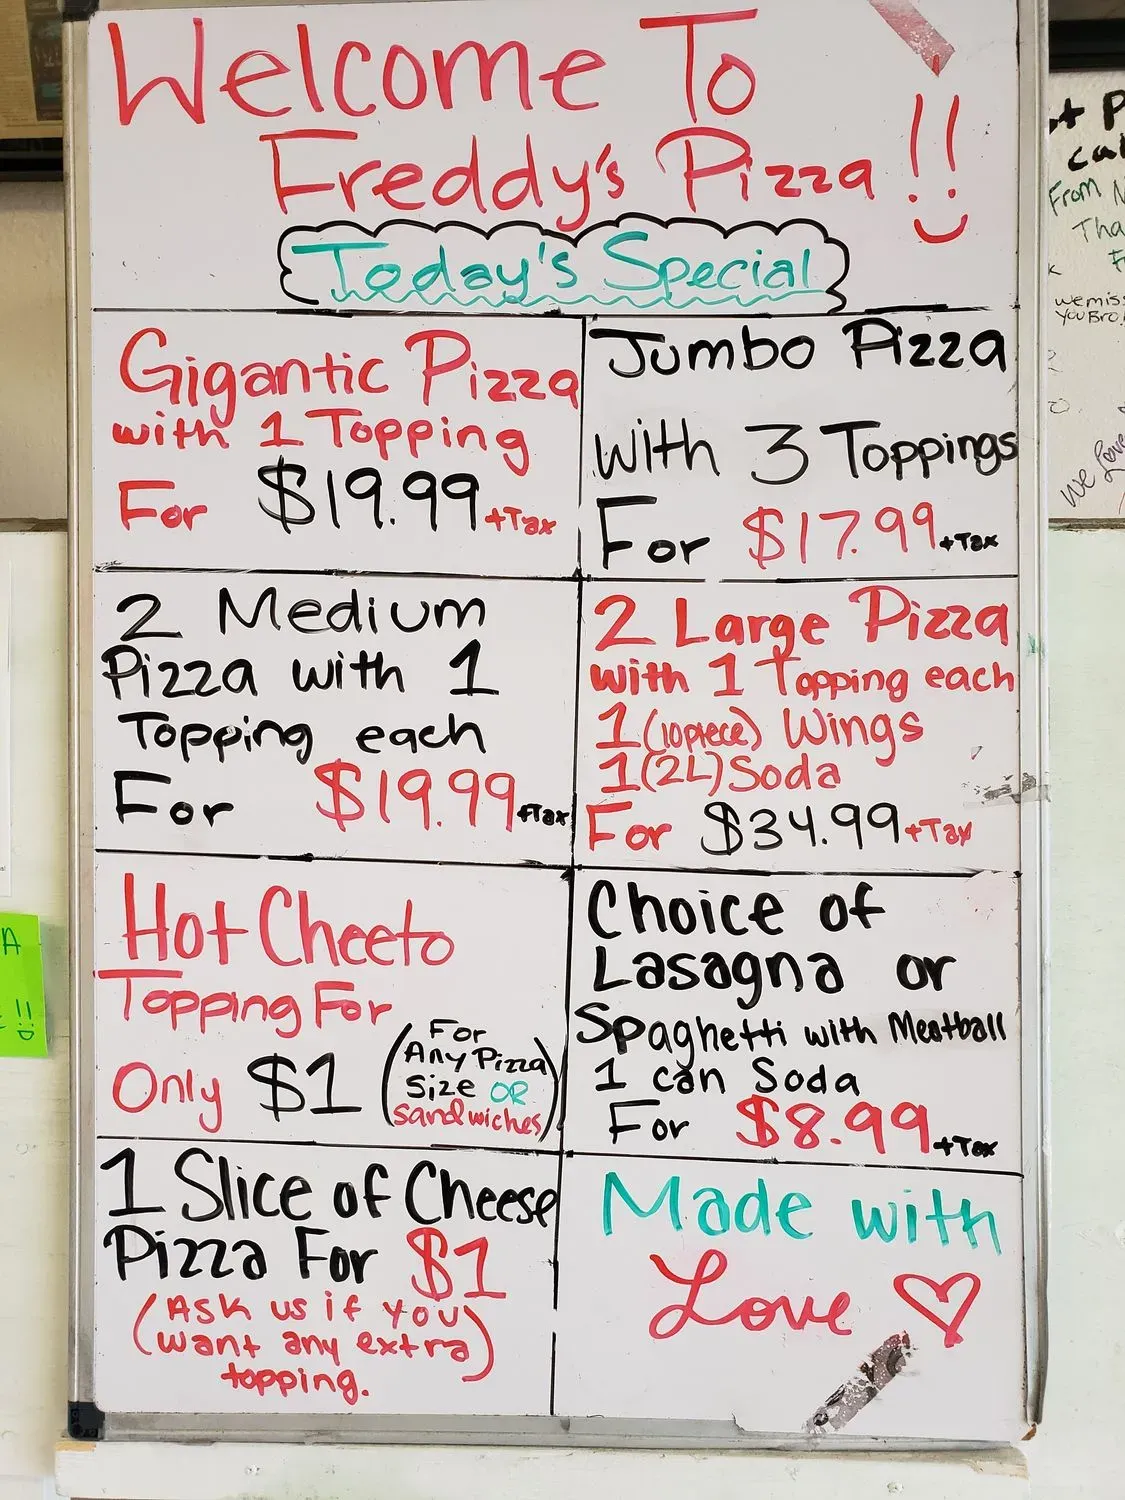 Welcome To
Freddy's Pizza !!
Today's Special
Gigantic Pizza
with 1 Topping
For $19.99 +Tax
Jumbo Pizza
with 3 Toppings
For $17.99 +Tax
2 Medium
Pizza with 1
Topping each
For $19.99 +Tax
2 Large Pizza
with 1 Topping each
1 (10piece) Wings
1 (2L) Soda
For $34.99 +Tax
Hot Cheeto
Topping For
Only $1
(For
Any Pizza
Size OR
sandwiches)
Choice of
Lasagna or
Spaghetti with Meatball
1 can Soda
For $8.99 +Tax
1 Slice of Cheese
Pizza For $1
(Ask us if you
want any extra)
topping.
Made with
Love ♡
From
we miss
you Bro!
We Love